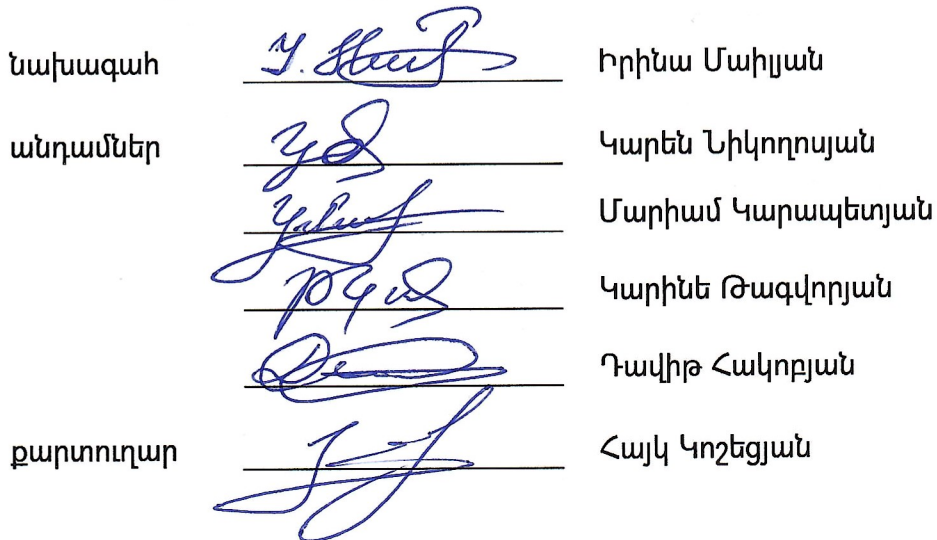 նախագահ Իրինա Մաիլյան
անդամներ Կարեն Նիկողոսյան
Մարիամ Կարապետյան
Կարինե Թագվորյան
Դավիթ Հակոբյան
քարտուղար Հայկ Կոշեցյան